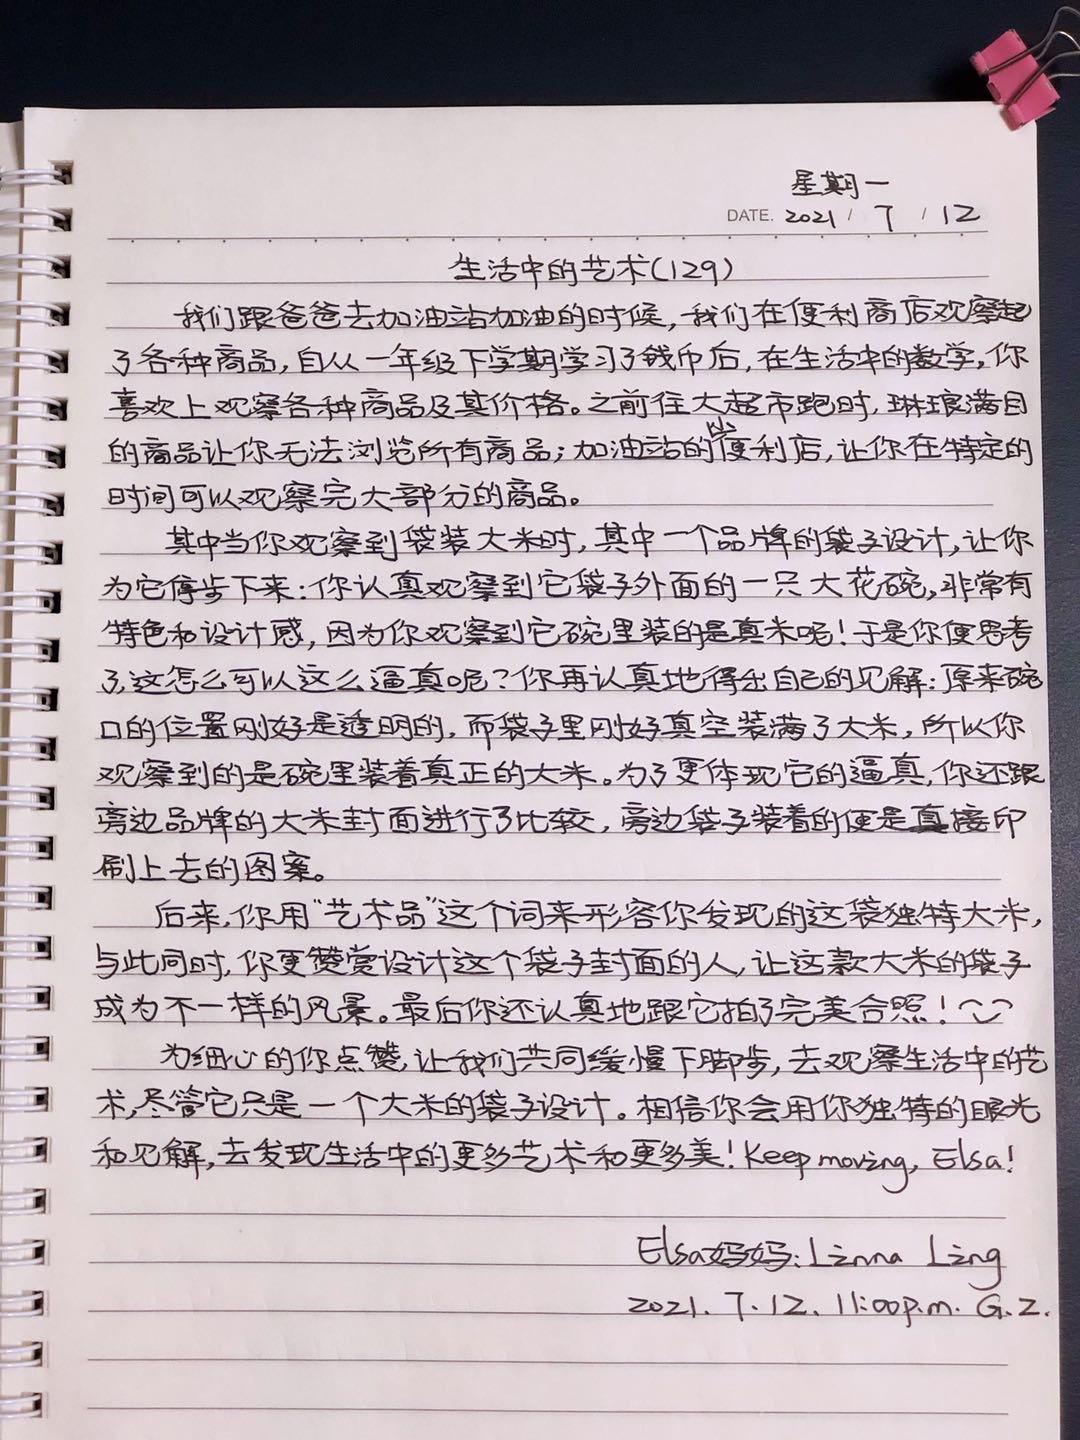 星期一
DATE. 2021 / 7 / 12
生活中的艺术(129)
我们跟爸爸去加油站加油的时候,我们在便利商店观察起
了各种商品,自从一年级下学期学习了钱币后,在生活中的数学,你
喜欢上观察各种商品及其价格。之前往大超市跑时,琳琅满目
的商品让你无法浏览所有商品;加油站的便利店,让你在特定的
时间可以观察完大部分的商品。
其中当你观察到袋装大米时,其中一个品牌的袋子设计,让你
为它停步下来:你认真观察到它袋子外面的一只大花碗,非常有
特色和设计感,因为你观察到它碗里装的是真米呢!于是你便思考
了,这怎么可以这么逼真呢?你再认真地得出自己的见解:原来碗
口的位置刚好是透明的,而袋子里刚好真空装满了大米,所以你
观察到的是碗里装着真正的大米。为了更体现它的逼真,你还跟
旁边品牌的大米封面进行了比较,旁边袋子装着的便是直接印
刷上去的图案。
后来,你用“艺术品”这个词来形容你发现的这袋独特大米,
与此同时,你更赞赏设计这个袋子封面的人,让这款大米的袋子
成为不一样的风景。最后你还认真地跟它拍了完美合照!
为细心的你点赞,让我们共同缓慢下脚步,去观察生活中的艺
术,尽管它只是一个大米的袋子设计。相信你会用你独特的眼光
和见解,去发现生活中的更多艺术和更多美!Keep moving, Elsa!
Elsa妈妈:Linna Ling
2021.7.12. 11:00p.m. G.Z.